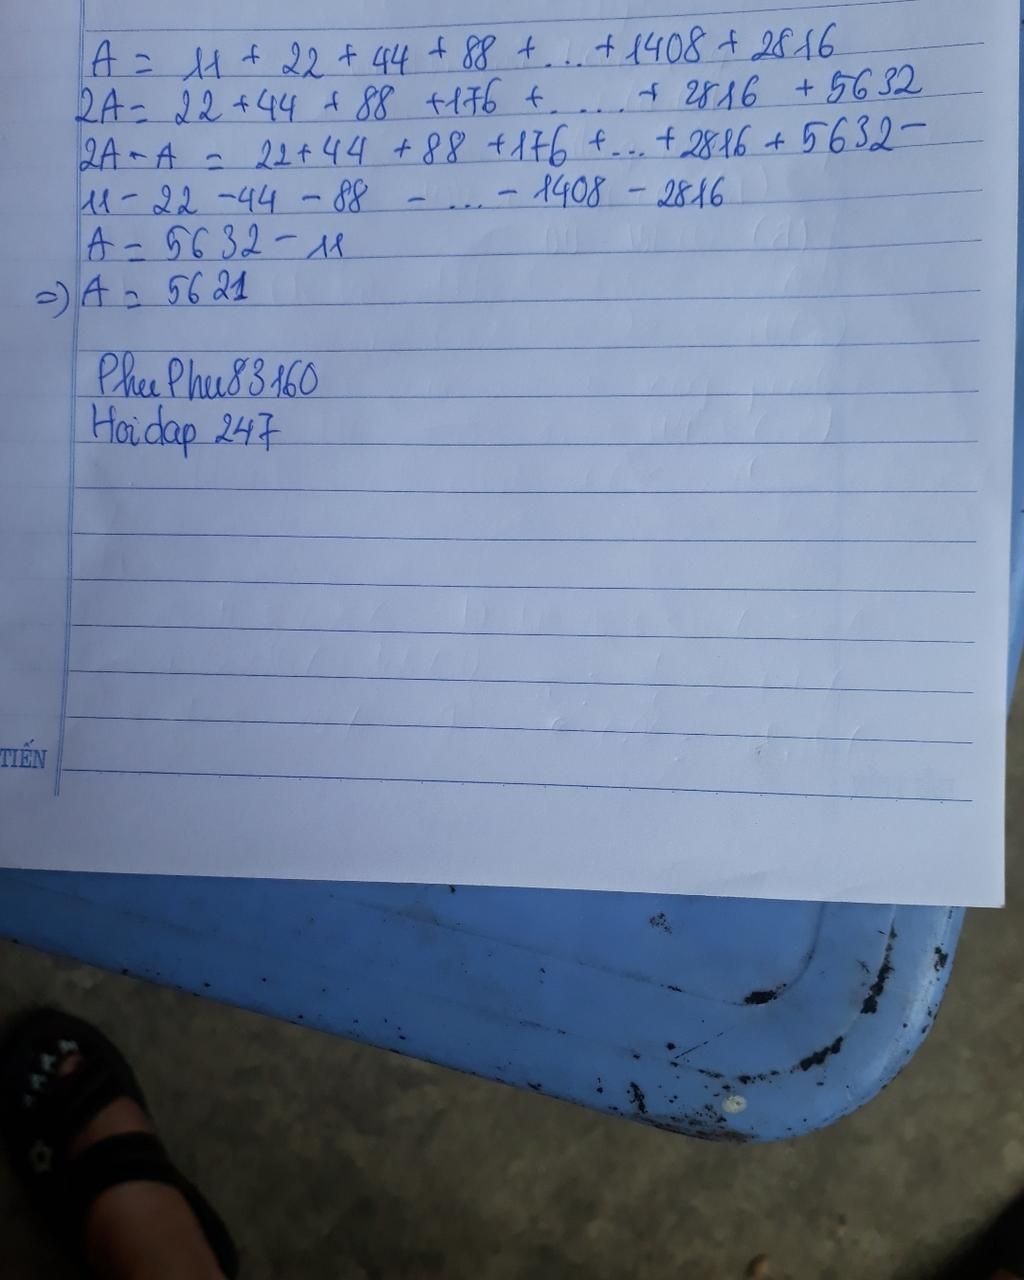 A = 11 + 22 + 44 + 88 + ... + 1408 + 2816
2A = 22 + 44 + 88 + 176 + ..... + 2816 + 5632
2A - A = 22 + 44 + 88 + 176 + ... + 2816 + 5632 -
11 - 22 - 44 - 88 - ... - 1408 - 2816
A = 5632 - 11
=) A = 5621
PhuPhu83160
Hoidap 247
TIẾN